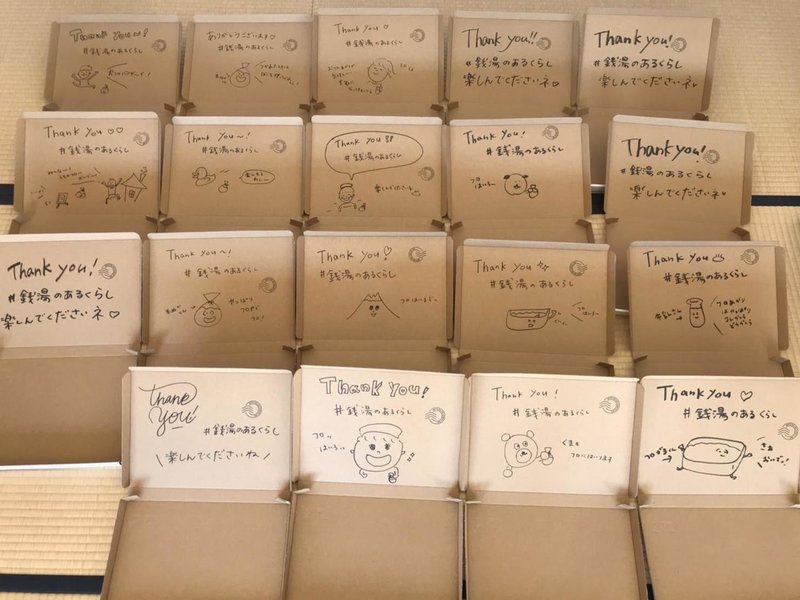 Thank you~!
#銭湯のあるくらし
ありがとうございます♡
#銭湯のあるくらし
Thank you ♡
#銭湯のあるくらし
Thank you!!
#銭湯のあるくらし
楽しんでくださいネ♡
Thank you!
#銭湯のあるくらし
楽しんでくださいネ♡
Thank you ♡♡
#銭湯のあるくらし
Thank you~!
#銭湯のあるくらし
Thank you!!
#銭湯のあるくらし
楽しんでくださいな
Thank you!
#銭湯のあるくらし
フロはいろ~
Thank you!
#銭湯のあるくらし
楽しんでくださいネ♡
Thank you!
#銭湯のあるくらし
楽しんでくださいネ♡
Thank you~!
#銭湯のあるくらし
やっぱり
フロやで
フロ!
Thank you!
#銭湯のあるくらし
フロはいるで~
Thank you
#銭湯のあるくらし
フロ
はいろ~
Thank you ♨
#銭湯のあるくらし
牛乳さん
フロあがり
Thank
you!
#銭湯のあるくらし
\ 楽しんでくださいね /
THANK YOU!
#銭湯のあるくらし
フロッ
はいろ~
Thank you!
#銭湯のあるくらし
くまも
フロにはいります
Thank you ♡
#銭湯のあるくらし
さぁ
おいで~!